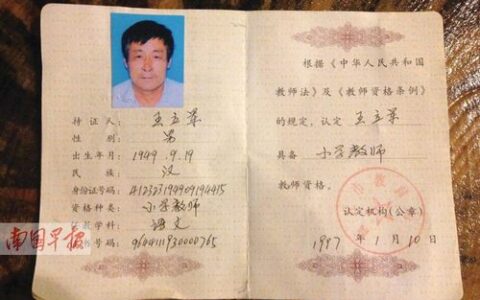 持证人: 王立军
性别: 男
出生年月: 1949.9.19
民族: 汉
身份证号码: 412323194909194415
资格种类: 小学教师
任教学科: 语文
证书号码: 9644111930000765
南国早报
根据《中华人民共和国
教师法》及《教师资格条例》
的规定，认定
具备 小学教师
教师资格。
认定机构(公章)
1997年1月10日